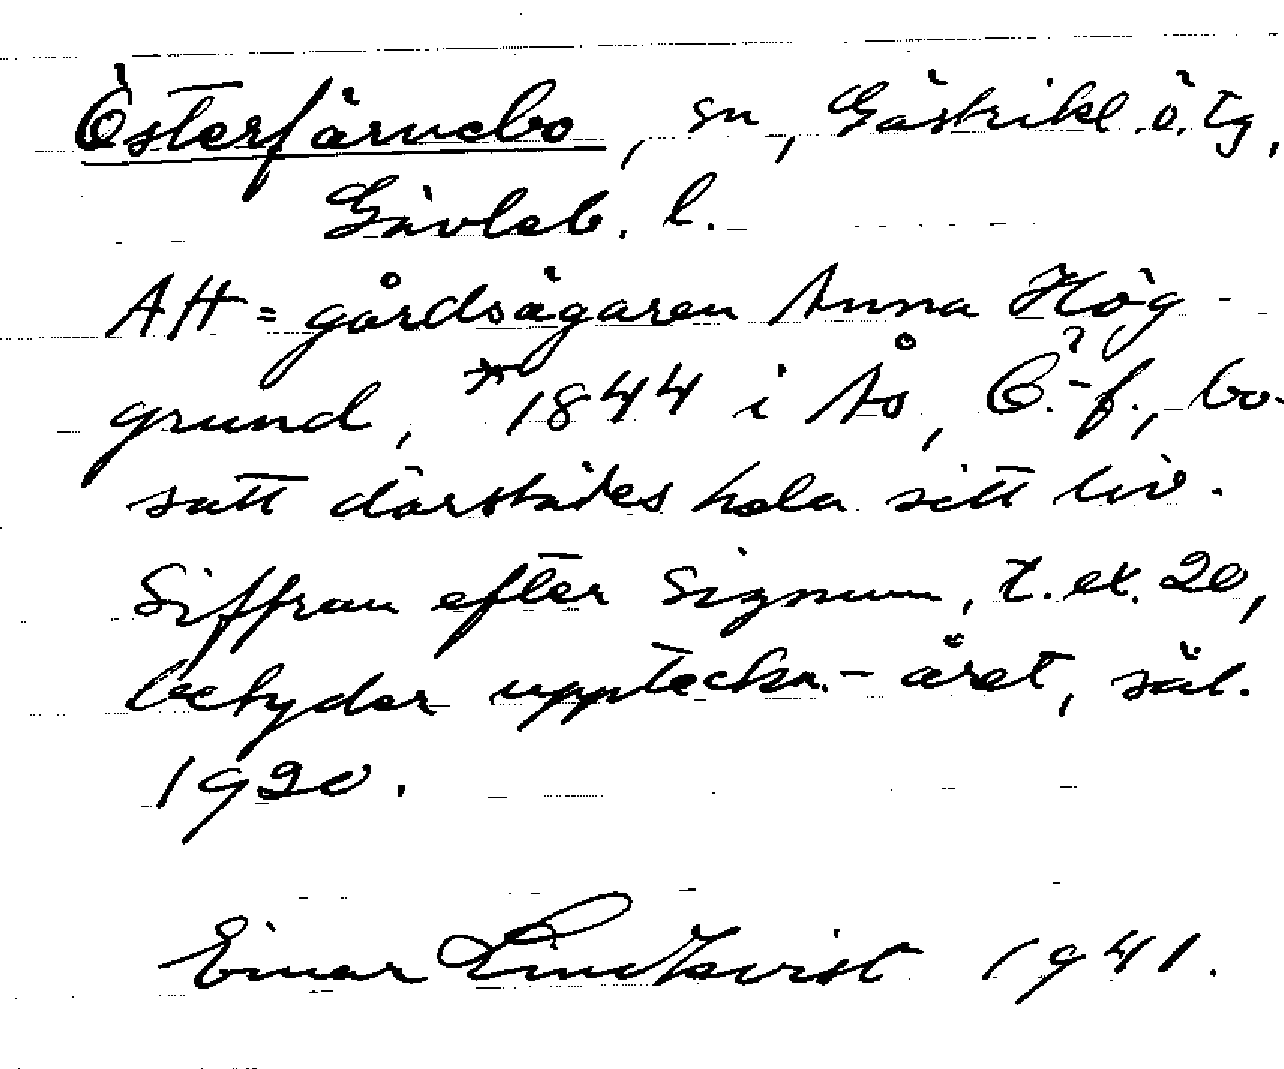 Österfärnebo, sn, Gästrikl. ö. tg,
Gävleb. l.
AH = gårdsägaren Anna Hög-
grund, *1844 i Ås, Ö.-f., bo-
satt därstädes hela sitt liv.
Siffran efter signum, t. ex. 20,
betyder uppteckn.-året, sål.
1920.
Einar Lindkvist 1941.